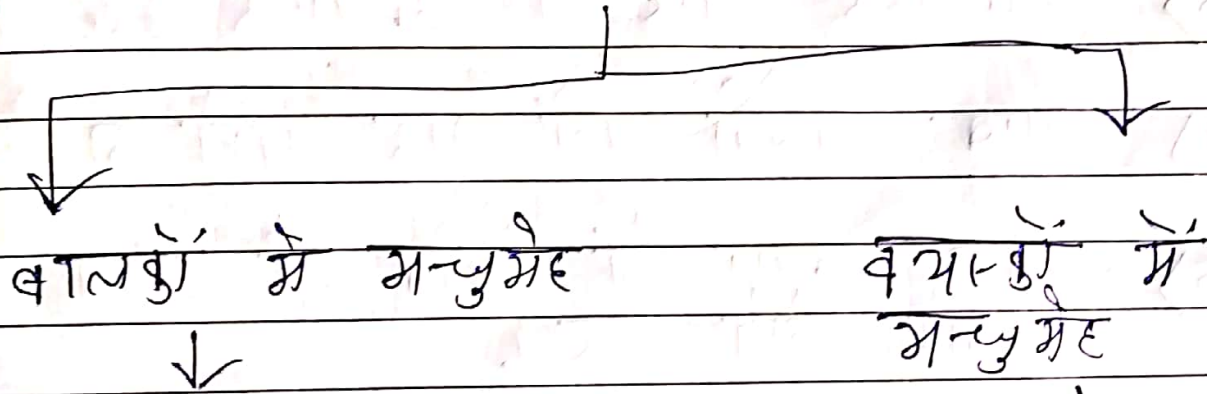 बालकों मे मधुमेह
वयास्कों में
मधुमेह